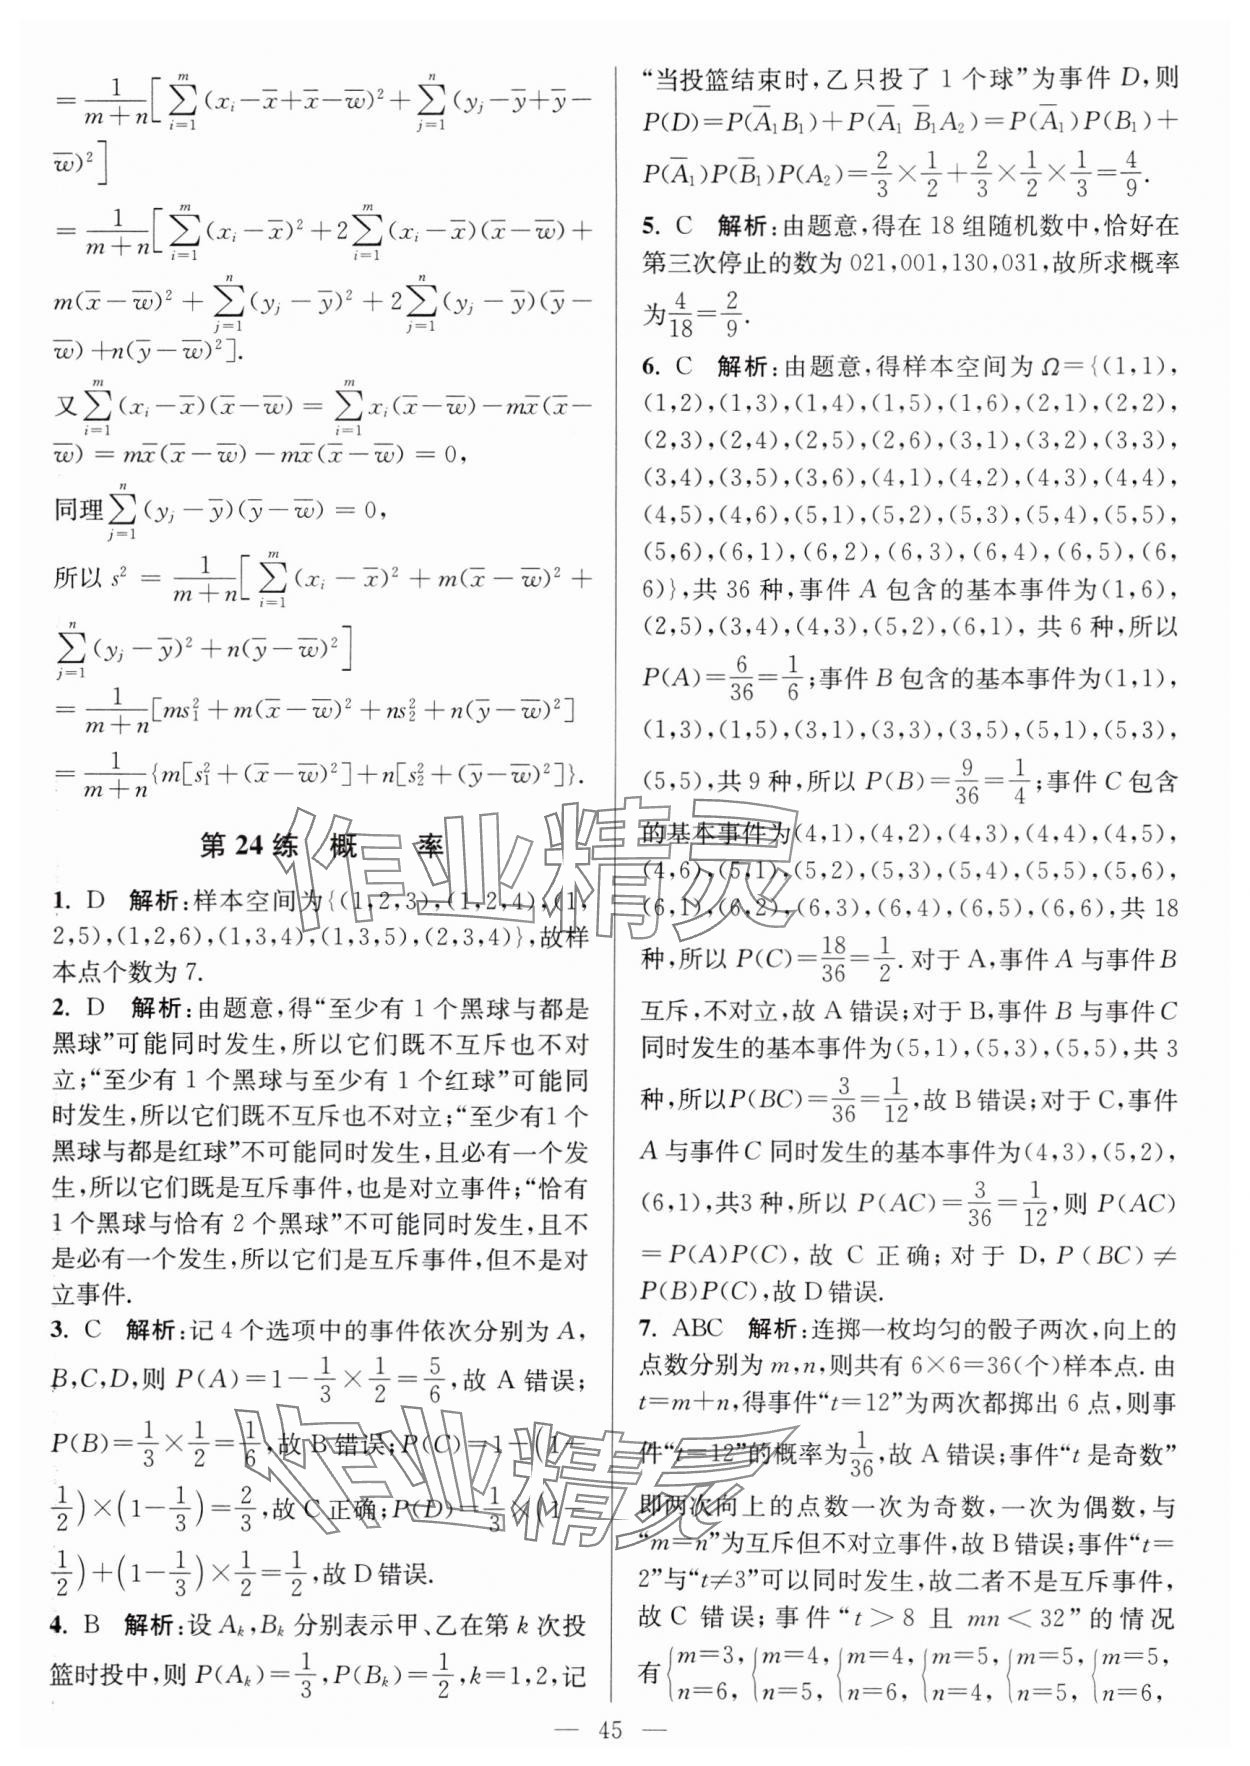 =\frac{1}{m+n}[\sum_{i=1}^{m}(x_i-\overline{x}+\overline{x}-\overline{w})^2+\sum_{j=1}^{n}(y_j-\overline{y}+\overline{y}-
\overline{w})^2]
=\frac{1}{m+n}[\sum_{i=1}^{m}(x_i-\overline{x})^2+2\sum_{i=1}^{m}(x_i-\overline{x})(\overline{x}-\overline{w})+
m(\overline{x}-\overline{w})^2+\sum_{j=1}^{n}(y_j-\overline{y})^2+2\sum_{j=1}^{n}(y_j-\overline{y})(\overline{y}-
\overline{w})+n(\overline{y}-\overline{w})^2].
又\sum_{i=1}^{m}(x_i-\overline{x})(\overline{x}-\overline{w})=\sum_{i=1}^{m}x_i(\overline{x}-\overline{w})-m\overline{x}(\overline{x}-
\overline{w})=m\overline{x}(\overline{x}-\overline{w})-m\overline{x}(\overline{x}-\overline{w})=0,
同理\sum_{j=1}^{n}(y_j-\overline{y})(\overline{y}-\overline{w})=0,
所以 s^2=\frac{1}{m+n}[\sum_{i=1}^{m}(x_i-\overline{x})^2+m(\overline{x}-\overline{w})^2+
\sum_{j=1}^{n}(y_j-\overline{y})^2+n(\overline{y}-\overline{w})^2]
=\frac{1}{m+n}[ms_1^2+m(\overline{x}-\overline{w})^2+ns_2^2+n(\overline{y}-\overline{w})^2]
=\frac{1}{m+n}{m[s_1^2+(\overline{x}-\overline{w})^2]+n[s_2^2+(\overline{y}-\overline{w})^2]}.
第 24 练 概 率
1. D 解析:样本空间为{(1,2,3),(1,2,4),(1,
2,5),(1,2,6),(1,3,4),(1,3,5),(2,3,4)},故样
本点个数为 7.
2. D 解析:由题意,得“至少有 1 个黑球与都是
黑球”可能同时发生,所以它们既不互斥也不对
立;“至少有 1 个黑球与至少有 1 个红球”可能同
时发生,所以它们既不互斥也不对立;“至少有1 个
黑球与都是红球”不可能同时发生,且必有一个发
生,所以它们既是互斥事件,也是对立事件;“恰有
1 个黑球与恰有 2 个黑球”不可能同时发生,且不
是必有一个发生,所以它们是互斥事件,但不是对
立事件.
3. C 解析:记 4 个选项中的事件依次分别为 A,
B,C,D,则 P(A)=1-\frac{1}{3}×\frac{1}{2}=\frac{5}{6},故 A 错误;
P(B)=\frac{1}{3}×\frac{1}{2}=\frac{1}{6},故 B 错误;P(C)=1-(1-
\frac{1}{2})×(1-\frac{1}{3})=\frac{2}{3},故 C 正确;P(D)=\frac{1}{3}×(1-
\frac{1}{2})+(1-\frac{1}{3})×\frac{1}{2}=\frac{1}{2},故 D 错误.
4. B 解析:设 A_k,B_k 分别表示甲、乙在第 k 次投
篮时投中,则 P(A_k)=\frac{1}{3},P(B_k)=\frac{1}{2},k=1,2,记
“当投篮结束时,乙只投了 1 个球”为事件 D,则
P(D)=P(\overline{A}_1B_1)+P(\overline{A}_1 \overline{B}_1A_2)=P(\overline{A}_1)P(B_1)+
P(\overline{A}_1)P(\overline{B}_1)P(A_2)=\frac{2}{3}×\frac{1}{2}+\frac{2}{3}×\frac{1}{2}×\frac{1}{3}=\frac{4}{9}.
5. C 解析:由题意,得在 18 组随机数中,恰好在
第三次停止的数为 021,001,130,031,故所求概率
为\frac{4}{18}=\frac{2}{9}.
6. C 解析:由题意,得样本空间为 Ω={(1,1),
(1,2),(1,3),(1,4),(1,5),(1,6),(2,1),(2,2),
(2,3),(2,4),(2,5),(2,6),(3,1),(3,2),(3,3),
(3,4),(3,5),(3,6),(4,1),(4,2),(4,3),(4,4),
(4,5),(4,6),(5,1),(5,2),(5,3),(5,4),(5,5),
(5,6),(6,1),(6,2),(6,3),(6,4),(6,5),(6,
6)},共 36 种,事件 A 包含的基本事件为(1,6),
(2,5),(3,4),(4,3),(5,2),(6,1), 共 6 种,所以
P(A)=\frac{6}{36}=\frac{1}{6};事件 B 包含的基本事件为(1,1),
(1,3),(1,5),(3,1),(3,3),(3,5),(5,1),(5,3),
(5,5),共 9 种,所以 P(B)=\frac{9}{36}=\frac{1}{4};事件 C 包含
的基本事件为(4,1),(4,2),(4,3),(4,4),(4,5),
(4,6),(5,1),(5,2),(5,3),(5,4),(5,5),(5,6),
(6,1),(6,2),(6,3),(6,4),(6,5),(6,6),共 18
种,所以 P(C)=\frac{18}{36}=\frac{1}{2}. 对于 A,事件 A 与事件 B
互斥,不对立,故 A 错误;对于 B,事件 B 与事件 C
同时发生的基本事件为(5,1),(5,3),(5,5),共 3
种,所以P(BC)=\frac{3}{36}=\frac{1}{12},故 B 错误;对于 C,事件
A 与事件 C 同时发生的基本事件为(4,3),(5,2),
(6,1),共3 种,所以 P(AC)=\frac{3}{36}=\frac{1}{12},则 P(AC)
=P(A)P(C),故 C 正确;对于 D,P(BC)≠
P(B)P(C),故 D 错误.
7. ABC 解析:连掷一枚均匀的骰子两次,向上的
点数分别为 m,n,则共有 6×6=36(个)样本点. 由
t=m+n,得事件“t=12”为两次都掷出 6 点,则事
件“t=12”的概率为\frac{1}{36},故 A 错误;事件“t 是奇数”
即两次向上的点数一次为奇数,一次为偶数,与
“m=n”为互斥但不对立事件,故 B 错误;事件“t=
2”与“t≠3”可以同时发生,故二者不是互斥事件,
故 C 错误;事件“t>8 且 mn<32”的情况
有{m=3,n=6,{m=4,n=5,{m=4,n=6,{m=5,n=4,{m=5,n=5,{m=5,n=6,
— 45 —
作业精灵
作业精灵